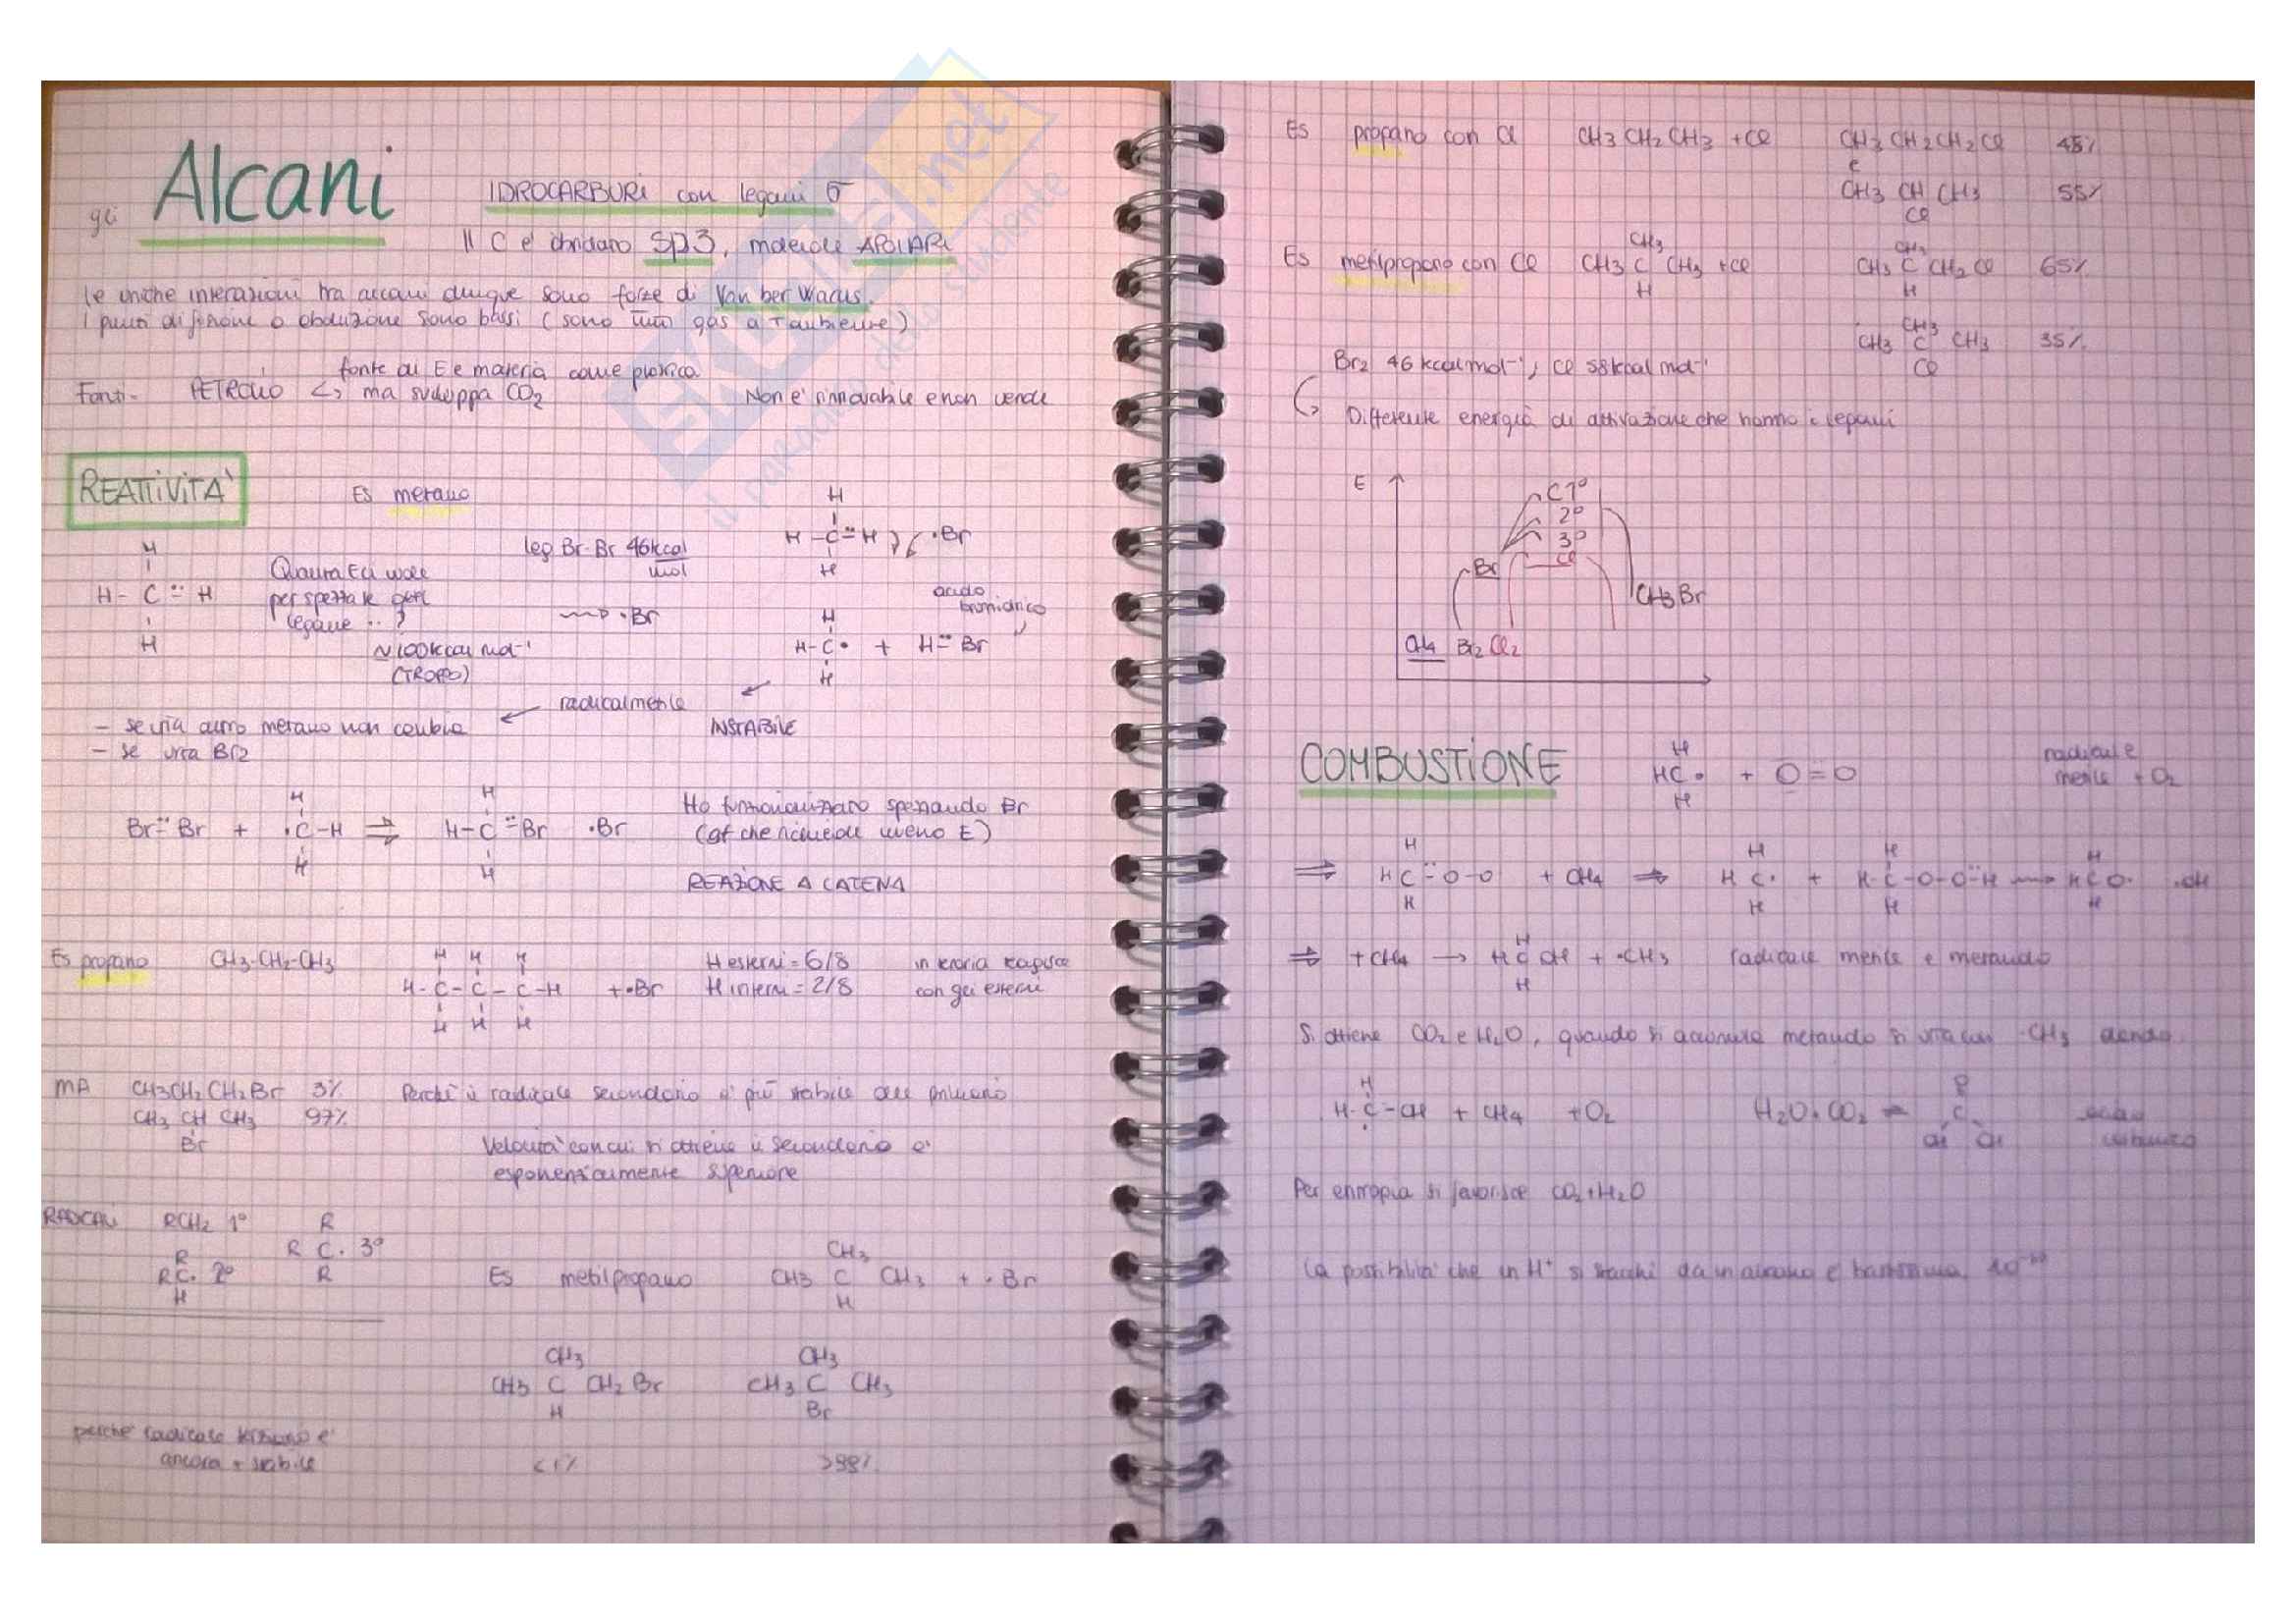 gli Alcani
IDROCARBURI con legami σ
Il C e' ibridato sp3, molecole APOLARI
le uniche interazioni tra alcani dunque sono forze di Van ber Waals.
I punti di fusione o ebolizione sono bassi (sono tutti gas a T ambiente)
fonte di E e materia come plastica
Fonti - PETROLIO ↳ ma sviluppa CO2 Non e' rinnovabile e non verde
REATTIVITA'
Es metano
H
H - C ¨ H
H
Quanta E ci vuole
per spezzare quel
legame .. ?
N 100 kcal mol⁻¹
(TROPPO)
leg Br-Br 46 kcal
mol
⇝ ·Br
H
H - C = H ·Br
H
acido
bromidrico
H
H - C • + H ¨ Br
H
radicalmetile
INSTABILE
- se urta altro metano non cambia
- se urta Br2
H H
Br ¨ Br + ·C - H ⇒ H - C ¨ Br ·Br
H H
Ho funzionalizzato spezzando Br
REAZIONE A CATENA
Es propano CH3-CH2-CH3
H H H
H - C - C - C - H + •Br
H H H
H esterni = 6/8 in teoria reagisce
H interni = 2/8 con gli esterni
MA CH3CH2CH2Br 3% Perché il radicale secondario e' più stabile del primario
CH3 CH CH3 97%
Br
Velocita' con cui si ottiene il secondario e'
esponenzialmente superiore
RADICALI RCH2 1° R
R C· 3°
R R
RC· 2°
H
Es metilpropano CH3
CH3 C CH3 + ·Br
H
CH3 CH3
CH3 C CH2 Br CH3 C CH3
H Br
perche' radicale terziario e'
ancora + stabile <1% >99%
Es propano con Cl CH3 CH2 CH3 + Cl CH3 CH2 CH2 Cl 45%
e
CH3 CH CH3 55%
Cl
Es metilpropano con Cl CH3
CH3 C CH3 + Cl
H
CH3
CH3 C CH2 Cl 65%
H
CH3
CH3 C CH3 35%
Cl
Br2 46 kcal mol⁻¹, Cl 58 kcal mol⁻¹
↳ Differente energia di attivazione che hanno i legami
E
C1°
2°
3°
Cl
Br
CH3Br
CH4 Br2 Cl2
COMBUSTIONE
H
HC· + O=O
H
radicale
metile + O2
H H H H
⇒ HC ¨ O-O + CH4 ⇒ H C· + H-C-O-O ¨ H ⇝ HCO· ·OH
H H H H
H
⇒ + CH4 → HC OH + ·CH3 radicale metile e metanolo
H
Si ottiene CO2 e H2O, quando si accumula metanolo si urta con ·CH3 dando
H
H-C-OH + CH4 + O2 H2O + CO2
Per entropia si favorisce CO2 + H2O
la possibilita' che un H⁺ si stacchi da un alcano e' bassissima